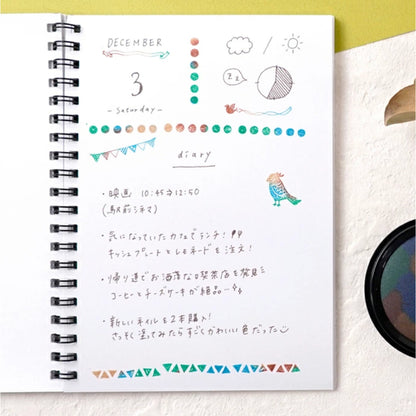 DECEMBER
3
- Saturday -
z z
diary
・映画 10:45→12:50
(駅前シネマ)
・気になっていたカフェでランチ! !!
キッシュプレートとレモネードを注文!
・帰り道でお洒落な喫茶店を発見
コーヒーとチーズケーキが絶品
・新しいネイルを2本購入!
さっそく塗ってみたらすごくかわいい色だった